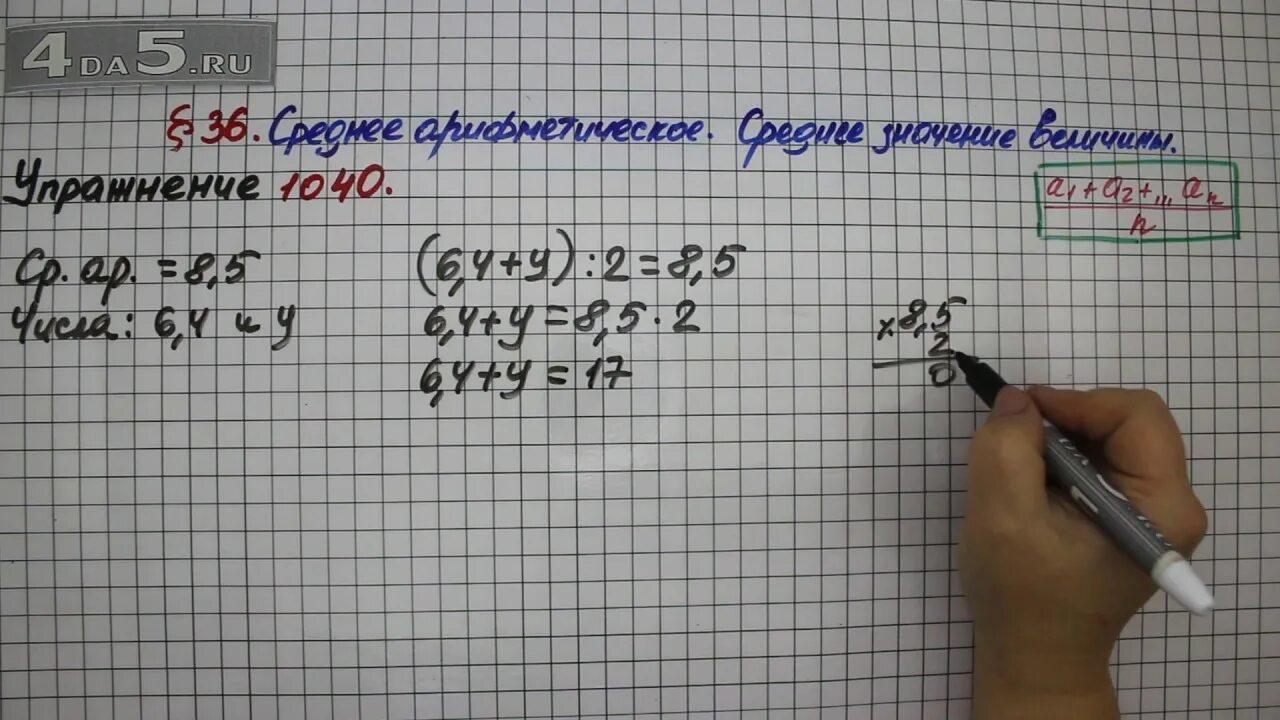 4DA5.RU
§ 36. Среднее арифметическое. Среднее значение величины.
Упражнение 1040.
a₁+a₂+...aₙ
n
Ср. ар. = 8,5
Числа: 6,4 и y
(6,4+y):2=8,5
6,4+y=8,5·2
6,4+y=17
×8,5
2
0